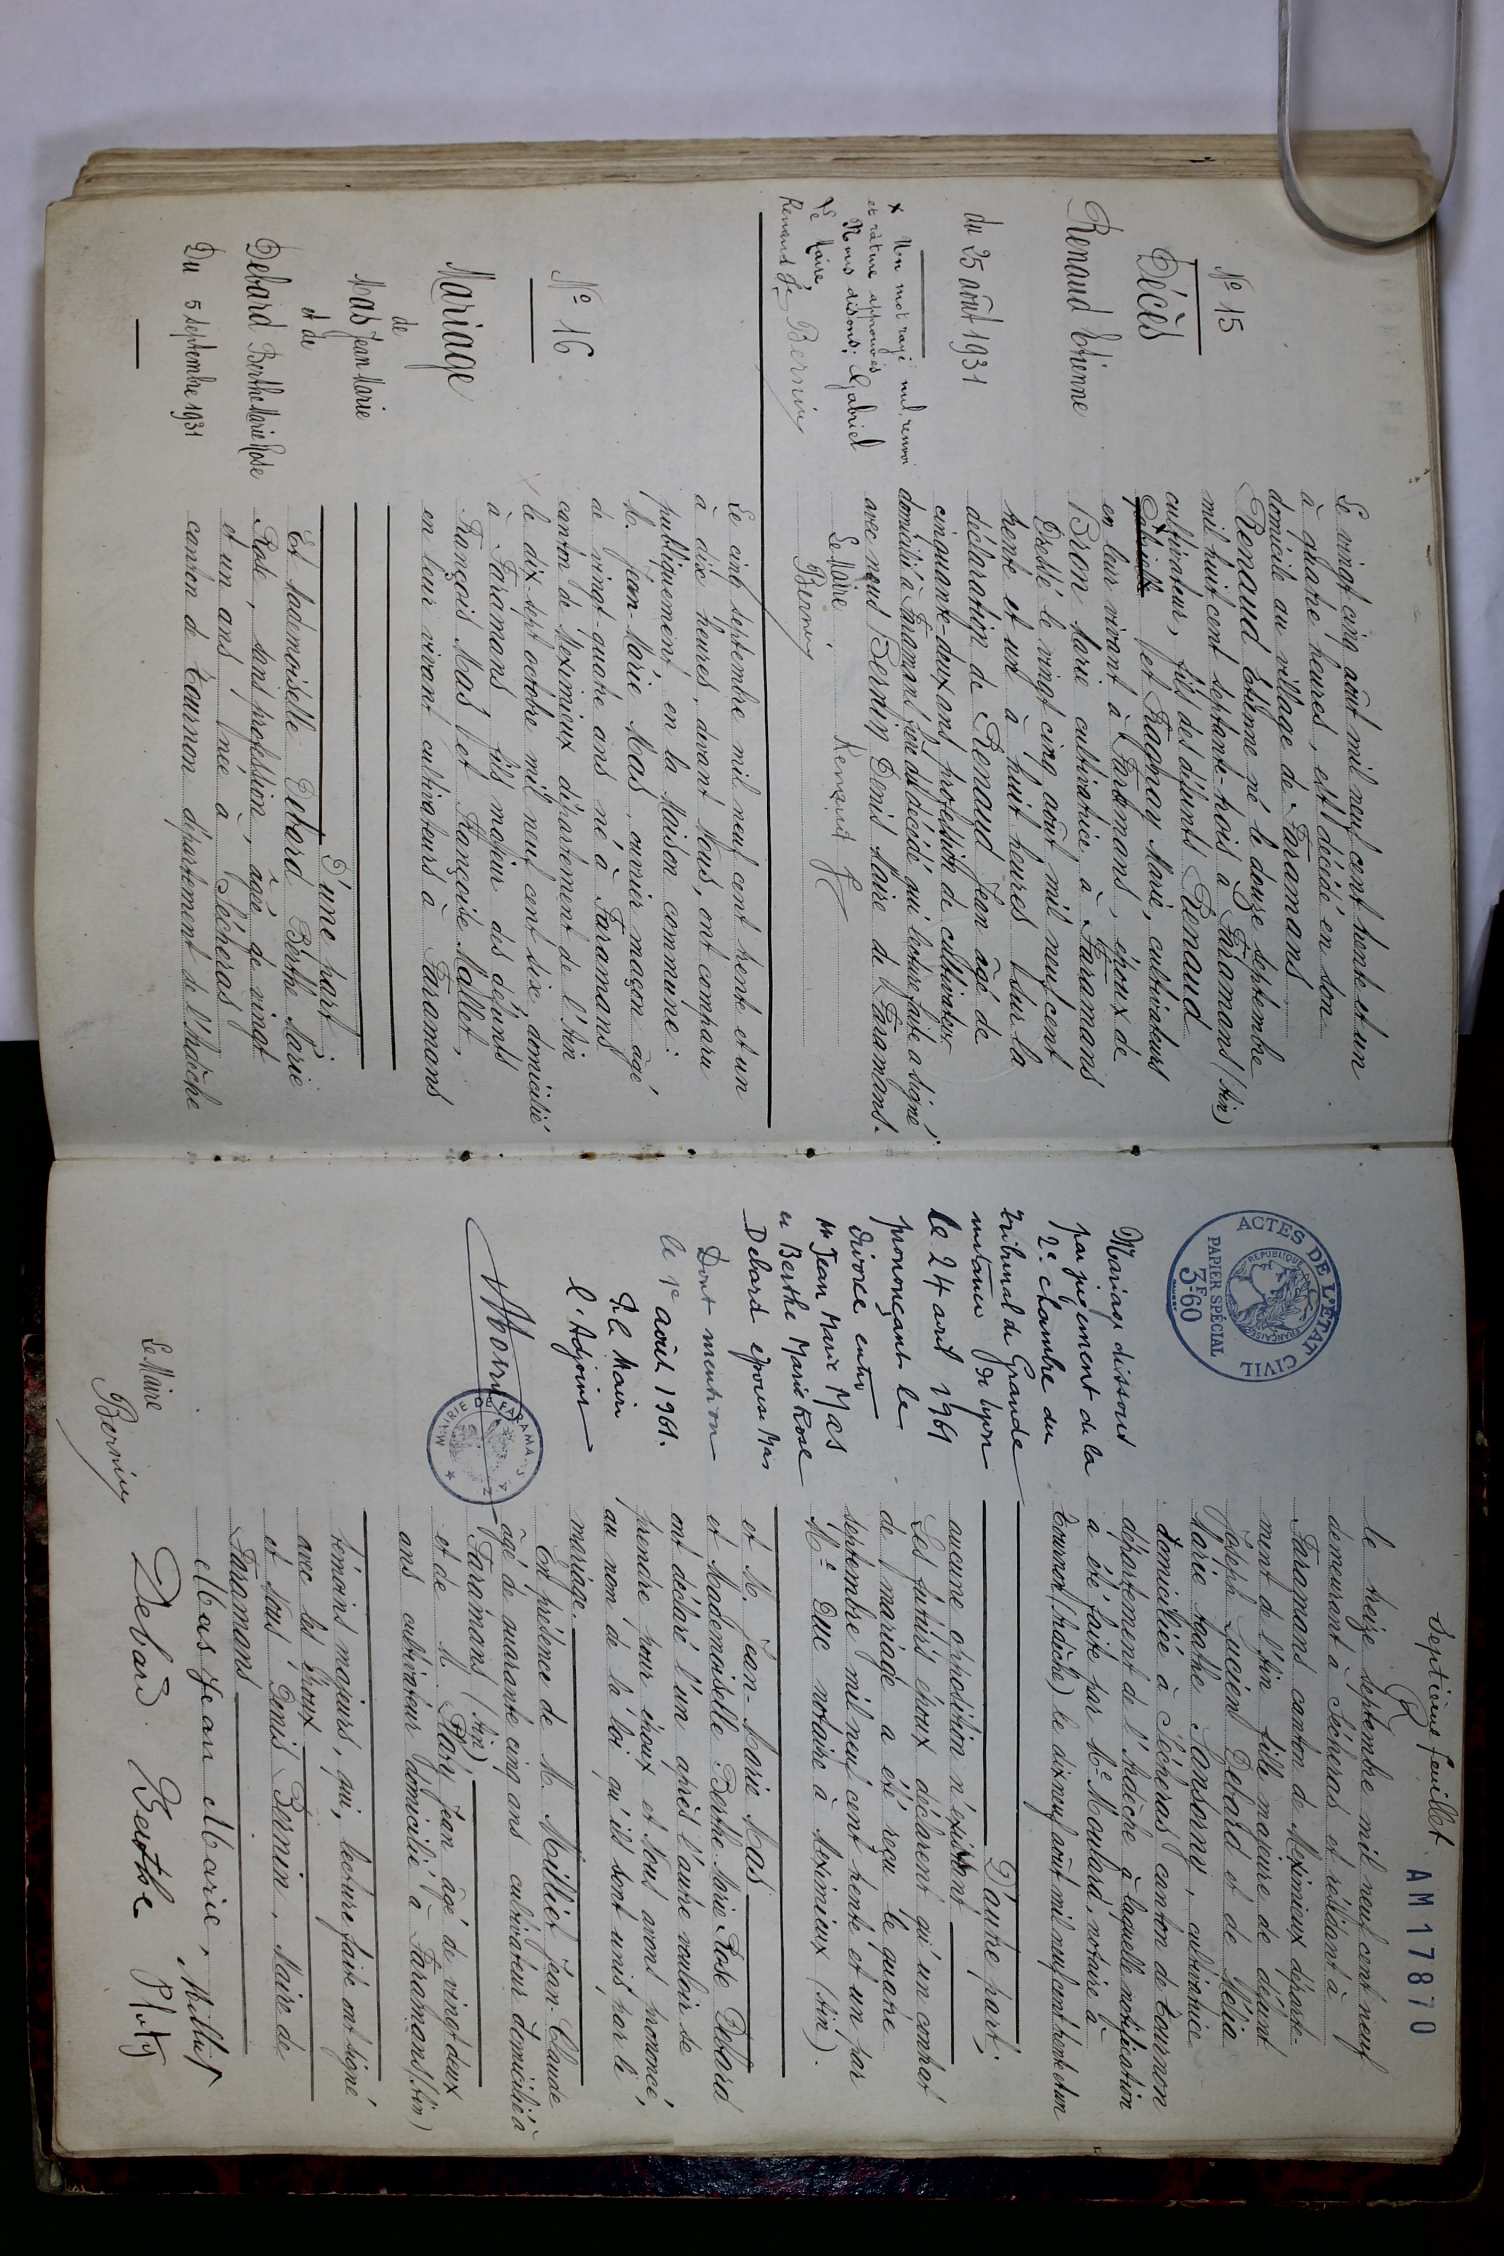 N° 15
Décès
Renaud Etienne
du 25 août 1931
x Un mot rayé nul, renvoi
et rature approuvés
Nous disons: Gabriel
Le Maire,
Renaud J. Bernin
Le vingt cinq août mil neuf cent trente et un
à quatre heures, est décédé en son
domicile au village de Faramans
Renaud Etienne né le douze septembre
mil huit cent septante-trois à Faramans (Ain)
cultivateur, fils des défunts Renaud
et Fagnay Marie, cultivateurs
en leur vivant à Faramans, époux de
Bron Marie cultivatrice à Faramans
Dressé le vingt cinq août mil neuf cent
trente et un à huit heures sur la
déclaration de Renaud Jean âgé de
cinquante-deux ans, profession de cultivateur
domicilié à Faramans frère du décédé qui lecture faite a signé
avec nous Bernin Denis Maire de Faramans.
Le Maire
Bernin
Renaud J
N° 16
Mariage
de
Mas Jean Marie
et de
Debard Berthe Marie Rose
Du 5 septembre 1931
Le cinq septembre mil neuf cent trente et un
à dix heures, devant Nous, ont comparu
publiquement, en la Maison commune:
M. Jean-Marie Mas, ouvrier maçon âgé
de vingt-quatre ans né à Faramans
canton de Meximieux département de l'Ain
le dix-sept octobre mil neuf cent six, domicilié
à Faramans, fils majeur des défunts
François Mas et Françoise Mallet,
en leur vivant cultivateurs à Faramans
D'une part
Et Mademoiselle Debard Berthe Marie
Rose, sans profession, âgée de vingt
et un ans née à Sécheras
canton de Tournon département de l'Ardèche
Septième feuillet
AM17870
ACTES DE L'ÉTAT CIVIL
RÉPUBLIQUE FRANÇAISE
PAPIER SPÉCIAL
3F.60
Mariage dissout
par jugement de la
2e chambre du
tribunal de Grande
instance de Lyon
le 24 avril 1961
prononçant le
divorce entre
Mr Jean Marie Mas
et Berthe Marie Rose
Debard épouse Mas
Dont mention
le 1e août 1961.
P. le Maire
l'Adjoint
MAIRIE DE FARAMANS
le treize septembre mil neuf cent neuf
demeurant à Sécheras et résidant à
Faramans canton de Meximieux départe-
ment de l'Ain fille majeure de défunt
Joseph Lucien Debard et de Mélia
Marie Agathe Sansonny, cultivatrice
domiciliée à Sécheras canton de Tournon
département de l'Ardèche à laquelle notification
a été faite par Me Moulard, notaire à
Tournon (Ardèche) le dix neuf août mil neuf cent trente et un
D'autre part;
aucune opposition n'existant
Les futurs époux déclarent qu'un contrat
de mariage a été reçu le quatre
septembre mil neuf cent trente et un par
Me Duc notaire à Meximieux (Ain).
et M. Jean-Marie Mas
et Mademoiselle Berthe Marie Rose Debard
ont déclaré l'un après l'autre vouloir se
prendre pour époux et Nous avons prononcé,
au nom de la loi qu'ils sont unis par le
mariage.
En présence de M. Milliet Jean-Claude
âgé de quarante cinq ans cultivateur domicilié à
Faramans (Ain)
et de M. Platy Jean âgé de vingt deux
ans cultivateur domicilié à Faramans (Ain)
témoins majeurs, qui, lecture faite ont signé
avec les époux
et Nous Denis Bernin, Maire de
Faramans
Mas Jean Marie, Milliet
Debard Berthe Platy
Le Maire
Bernin